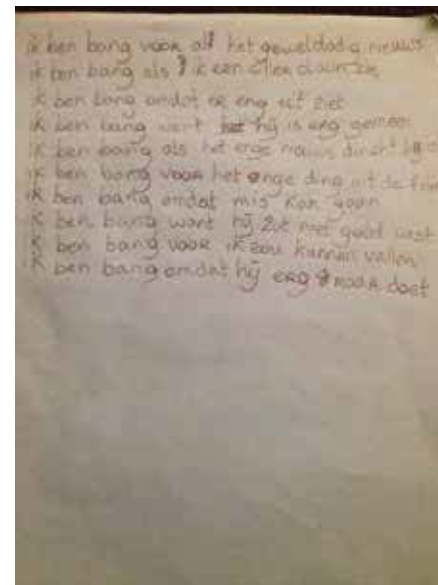 ik ben bang voor all het geweldadig nieuws
ik ben bang als ik een clown zie
ik ben bang omdat er eng uit ziet
ik ben bang want hij is erg gemeen
ik ben bang als het enge nieuws dicht bij
ik ben bang voor het enge ding uit de film
ik ben bang omdat mis kan gaan
ik ben bang want hij zit niet goed vast
ik ben bang voor ik zou kunnen vallen
ik ben bang omdat hij erg raar doet